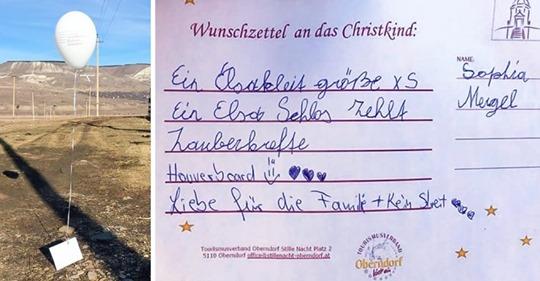 Wunschzettel an das Christkind:
Ein Elsakleit größe XS
Ein Elsa Schlos Zehlt
Zauberkrefte
Houverboard
Liebe für die Familie + Kein Streit
NAME:
Sophia
Mergel
Tourismusverband Oberndorf Stille Nacht Platz 2
5110 Oberndorf office@stillenacht-oberndorf.at
TOURISMUSVERBAND
Oberndorf